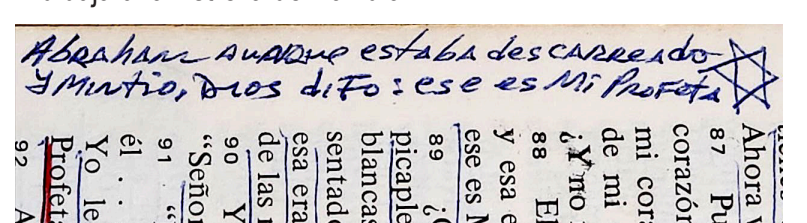 Abraham aunque estaba descarreado
Y Mintio, Dios diJo: ese es Mi Profeta
Ahora v
87 Pu
corazón
mi cora
de mi
¿Y no
88 El
y esa e
ese es M
89 ¿
picaple
blancas
sentad
esa era
de las
90 Y
“Señor
91 “
él . .
Yo le
Profet
92 A